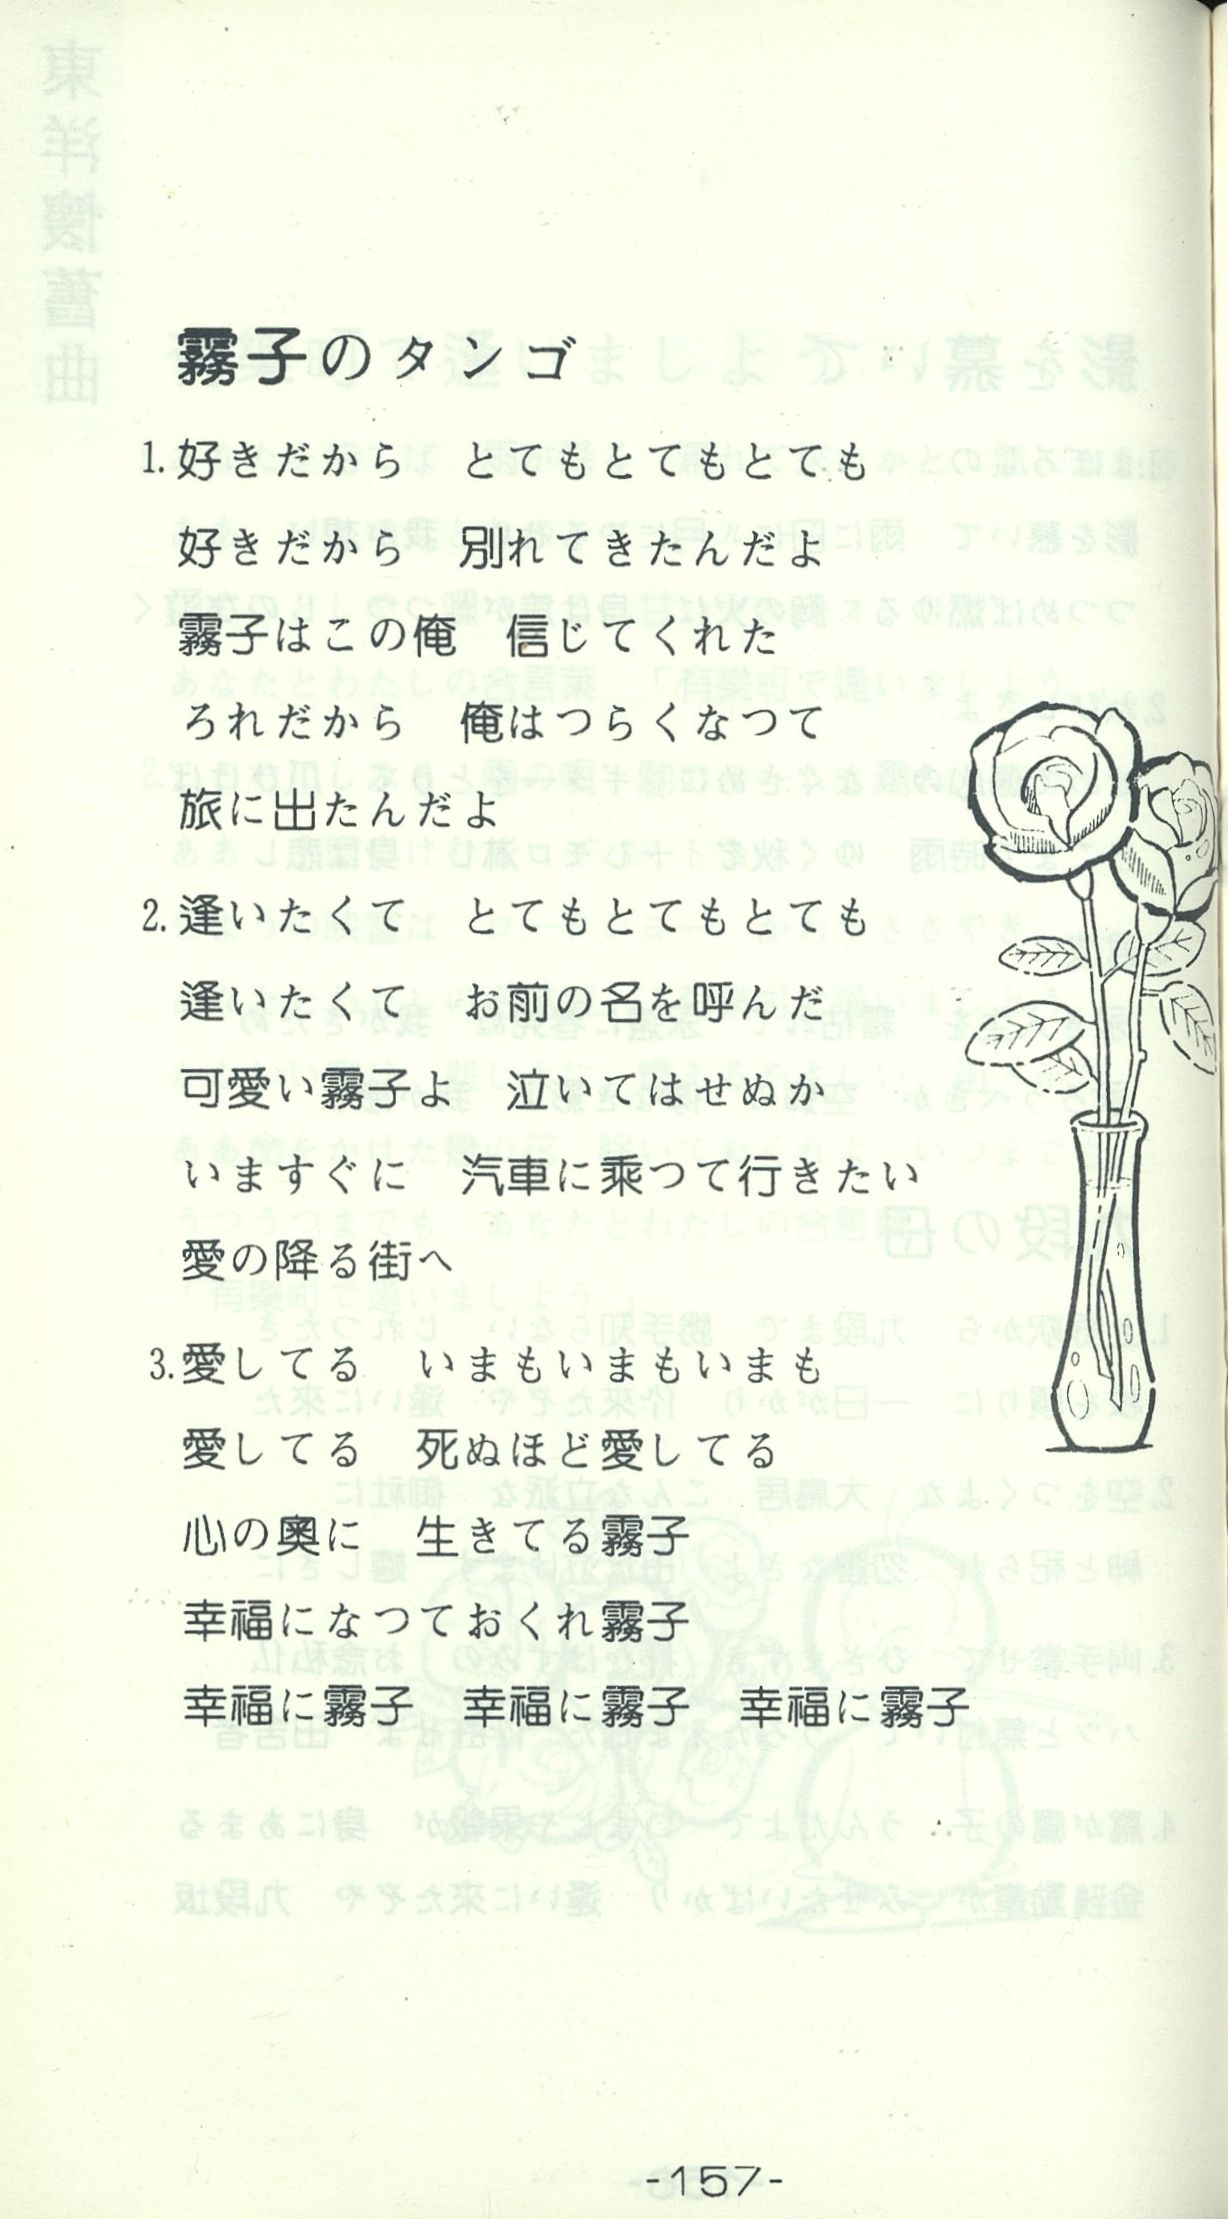 霧子のタンゴ
1.好きだから　とてもとてもとても
好きだから　別れてきたんだよ
霧子はこの俺　信じてくれた
ろれだから　俺はつらくなつて
旅に出たんだよ
2.逢いたくて　とてもとてもとても
逢いたくて　お前の名を呼んだ
可愛い霧子よ　泣いてはせぬか
いますぐに　汽車に乘つて行きたい
愛の降る街へ
3.愛してる　いまもいまもいまも
愛してる　死ぬほど愛してる
心の奧に　生きてる霧子
幸福になつておくれ霧子
幸福に霧子　幸福に霧子　幸福に霧子
-157-